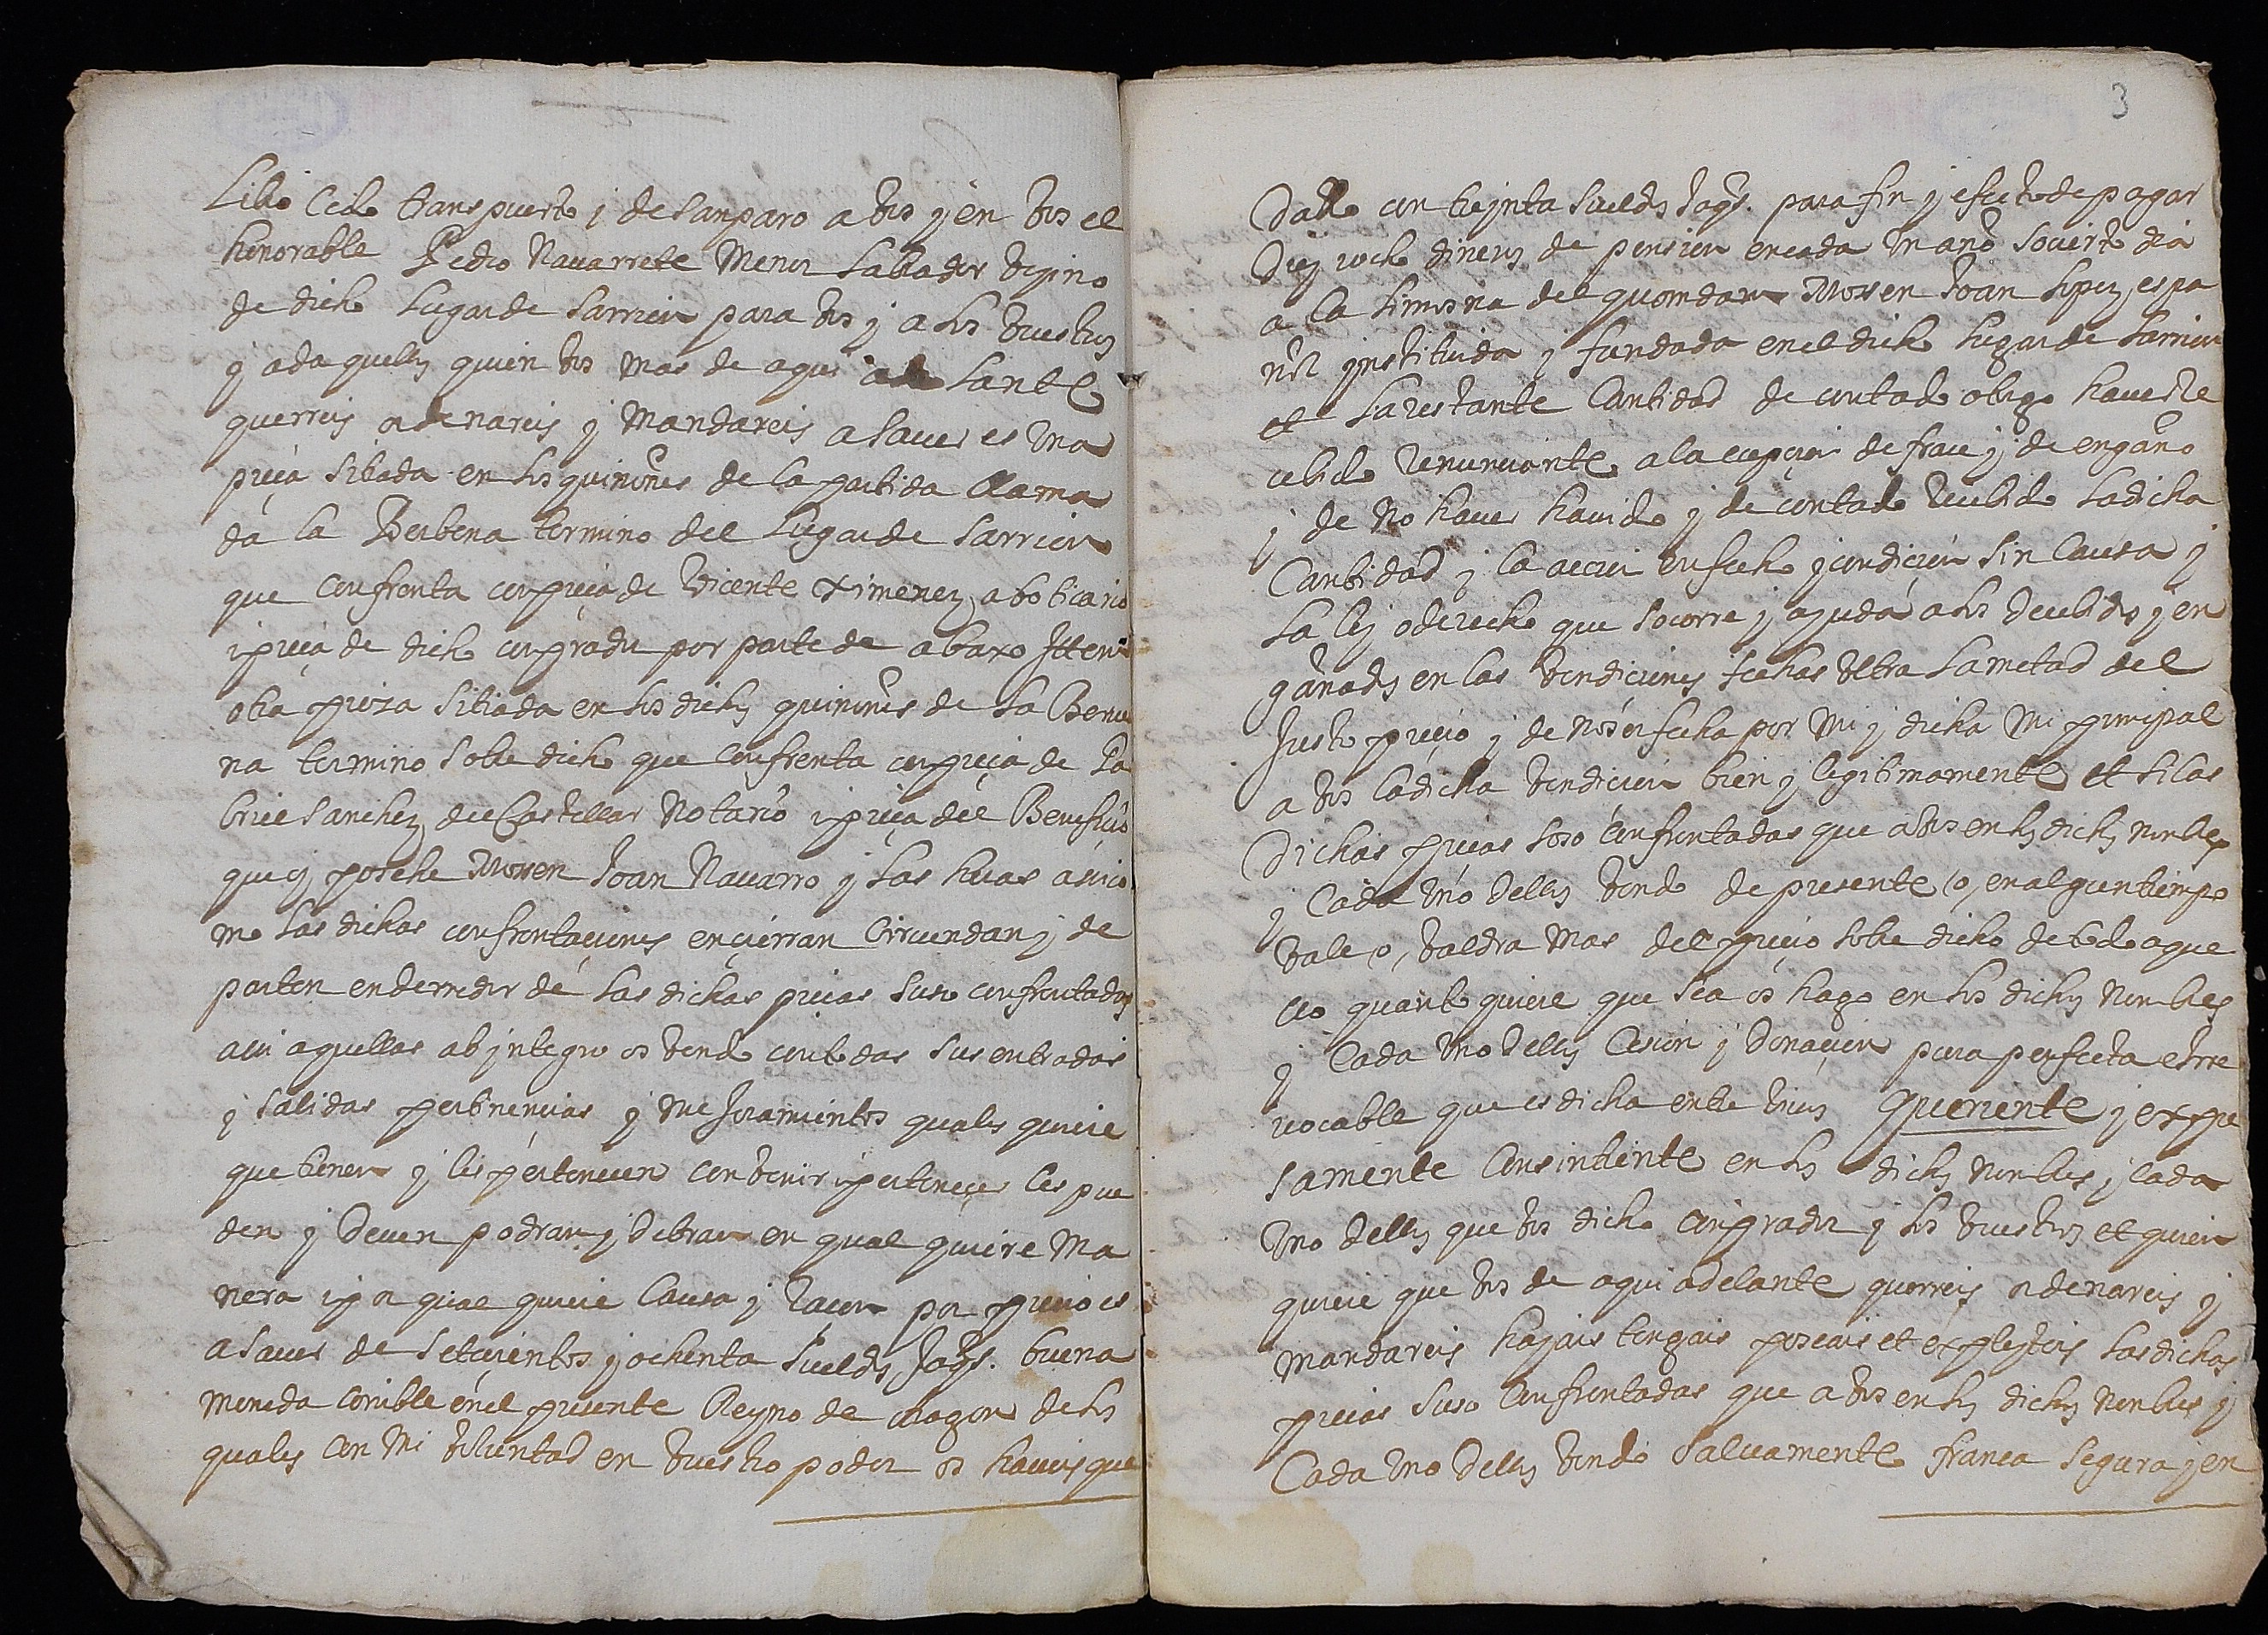 Libro cedo transpuerto y desanparo a vos y en vos el
honorable Pedro Nauarrete Menor Labrador vezino
de dicho Lugar de Sarrion para vos y a los vuestros
y ad aquellos quien vos mas de aqui adelante
querreis ordenareis y Mandareis a sauer es vna
pieça sitiada en los quiñones de la partida llama
da la Berbena termino del Lugar de Sarrion
que confrenta con pieça de Vicente Ximenez aboticario
i pieça de dicho conprador por parte de abaxo Ittem
otra pieza sitiada en los dichos quiñones de la Berue
na termino sobre dicho que confrenta con pieça de Ga
briel Sanchez del Castellar Notario i pieça del Beneficio
que oy posehe Mossen Joan Nauarro y las horas asi co
mo las dichas confrontaçiones ençierran circundan y de
parten enderredor de las dichas pieças suso confrontadas
asi aquellas ab integro os vendo con todas sus entradas
y salidas pertinencias y mejoramientos quales quiere
que tienen y les pertenecen conbenir i perteneçer les pue
den y deuen podran y debran en qual quiere Ma
nera i por qual quiere causa y raçon por precio es
a sauer de setecientos y ochenta sueldos Jaqs. buena
moneda corrible en el presente Reyno de Aragon de los
quales con mi voluntad en vuestro poder os haueis que
3
dado con treynta sueldos Jaqs. para fin y efecto de pagar
diez y ocho dineros de pension en cada vn año so cierto dia
a la limosna del quondam Mossen Joan Lopez, espa
ñol ynstituida y fundada en el dicho Lugar de Sarrion
et la restante cantidad de contado otorgo hauer re
cebido renunciante a la excepçion de frau y de engaño
y de no hauer hauido y de contado recebido la dicha
cantidad y la accion en fecho y condiçion sin causa y
la ley o derecho que socorre y ayuda a los decebidos y en
gañados en las vendiciones fechas vltra la metad del
Justo preçio y de no ser fecha por mi y dicha mi principal
a vos la dicha vendicion bien y legitimamente et si las
dichas pieças suso confrontadas que a vos en los dichos nombres
y cada vno dellos vendo de presente o, en algun tiempo
vale o, valdra mas del preçio sobre dicho de todo aque
llo quanto quiere que sea os hago en los dichos nombres
y cada vno dellos cesion y donaçion pura perfecta e irre
uocable que es dicha entre viuos Queriente y expre
samente consintiente en los dichos nombres y cada
vno dellos que vos dicho conprador y los vuestros et quien
quiere que vos de aqui adelante querreis ordenareis y
mandareis hayais tengais poseais et expleyteis las dichas
pieças suso confrontadas que a vos en los dichos nombres y
cada vno dellos vendo saluamente franca segura y en